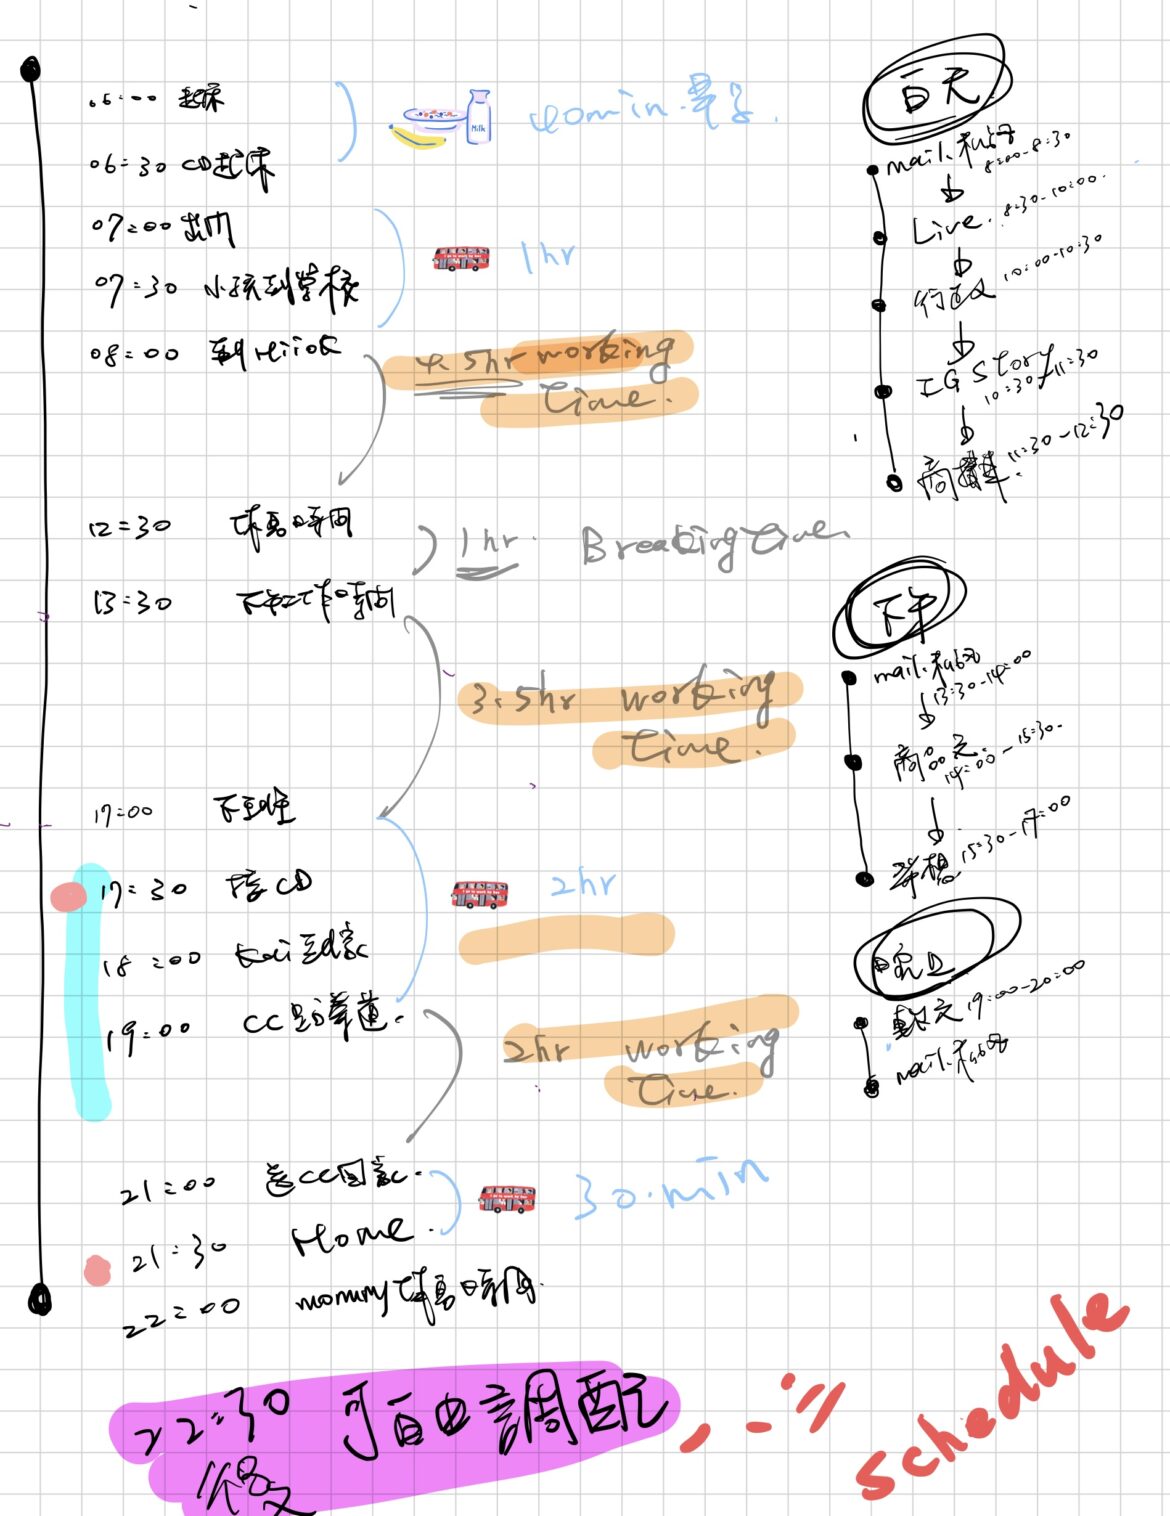 06:00 起床
06:30 CD起床
07:00 出門
07:30 小孩到學校
08:00 到Hiiok
Milk
40min.早餐.
1hr
4.5hr working
time.
12:30 休息時間
1hr. Breaking time.
13:30 下午工作時間
3.5hr working
time.
17:00 下班
17:30 接CD
2hr
18:00 Kai到家
19:00 CC跆拳道.
2hr working
Time.
21:00 送CC回家.
30.min
21:30 Home.
22:00 mommy休息時間.
22:30 可自由調配
後
schedule
白天
mail.私訊
8:00-8:30
Live. 8:30-10:00.
行政 10:00-10:30
IG Story
10:30-11:30
商 11:30-12:30
下午
mail.私訊
13:30-14:00
商品文
14:00-15:30.
15:30-17:00
晚上
文 19:00-20:00
mail.私訊